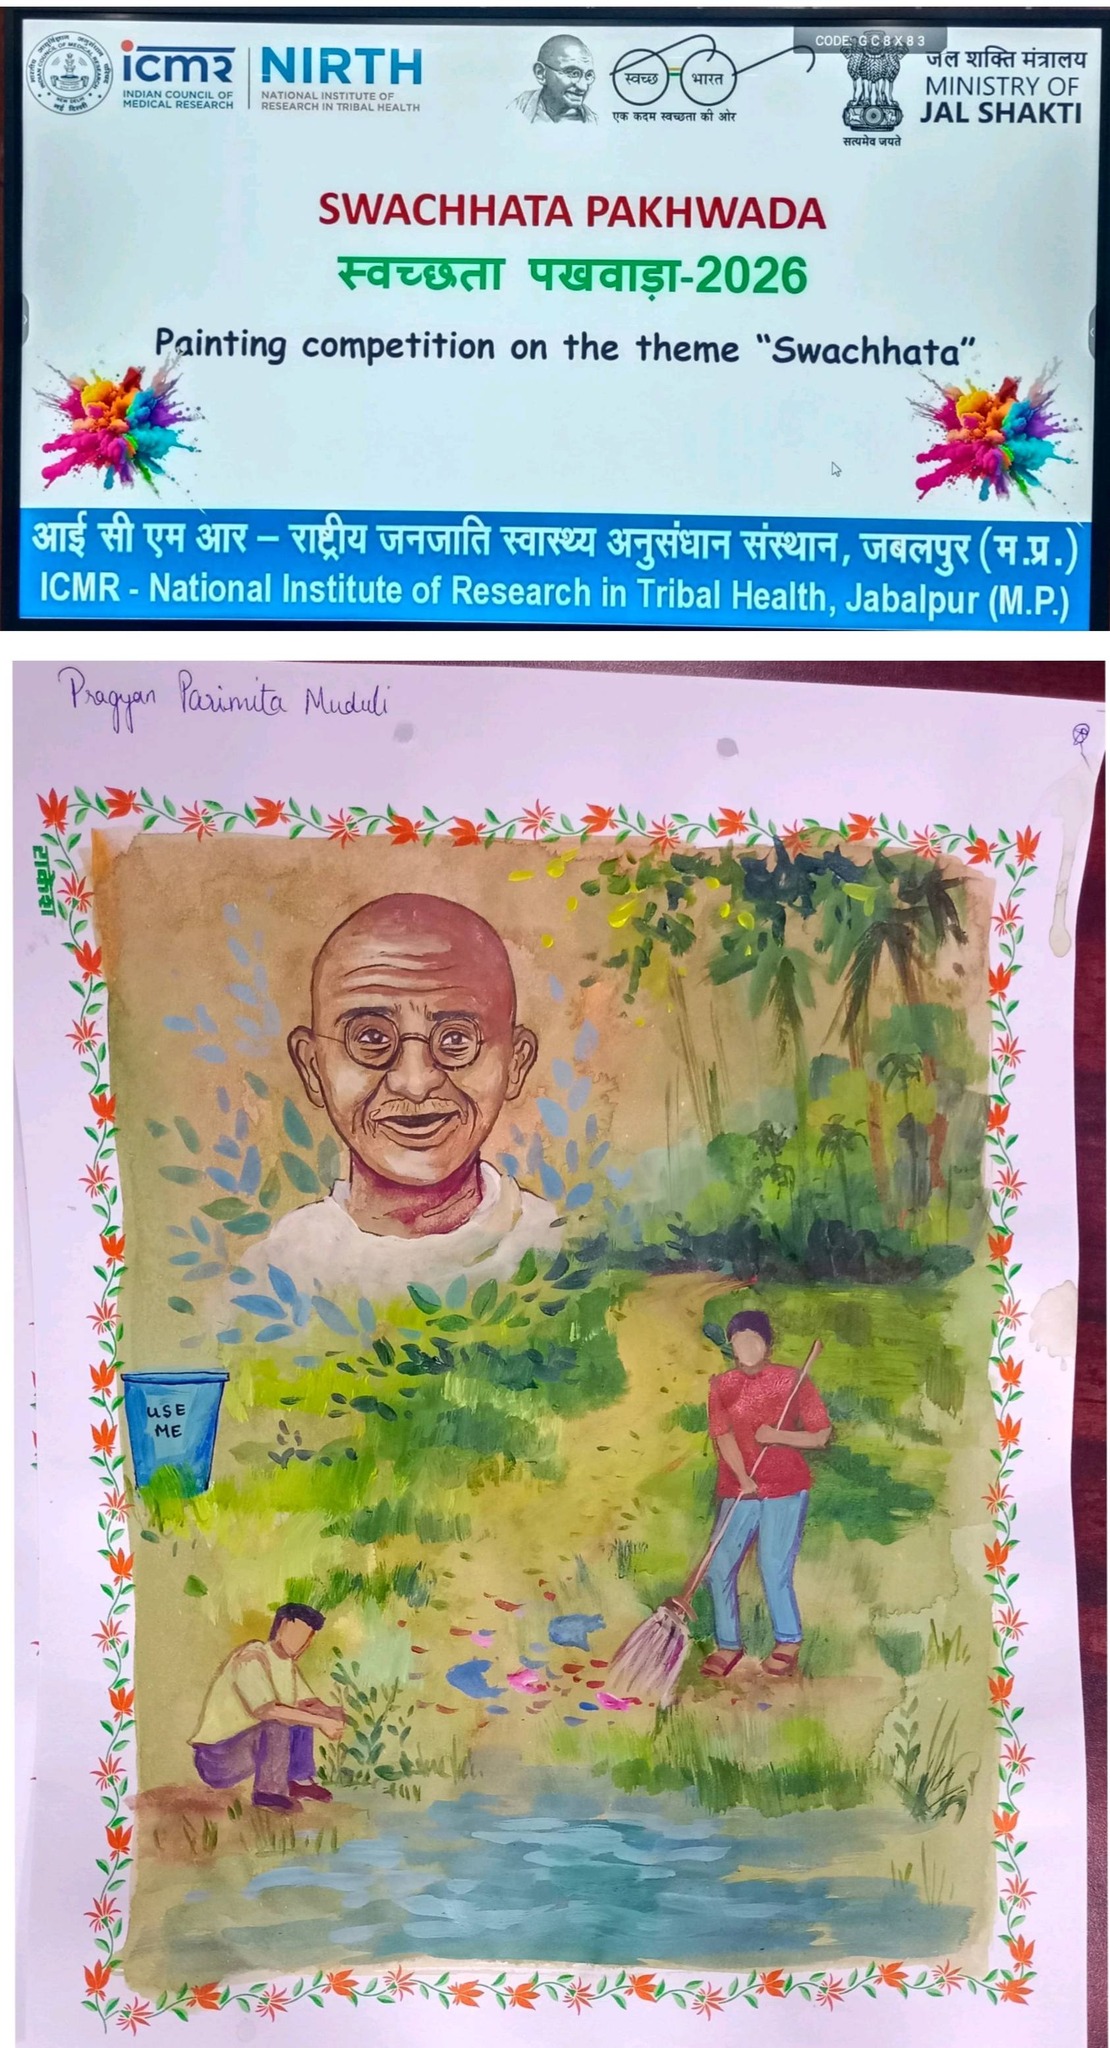 CODE: G C 8 X 8 3
icmr
INDIAN COUNCIL OF
MEDICAL RESEARCH
NIRTH
NATIONAL INSTITUTE OF
RESEARCH IN TRIBAL HEALTH
स्वच्छ भारत
एक कदम स्वच्छता की ओर
सत्यमेव जयते
जल शक्ति मंत्रालय
MINISTRY OF
JAL SHAKTI
SWACHHATA PAKHWADA
स्वच्छता पखवाड़ा-2026
Painting competition on the theme “Swachhata”
आई सी एम आर – राष्ट्रीय जनजाति स्वास्थ्य अनुसंधान संस्थान, जबलपुर (म.प्र.)
ICMR - National Institute of Research in Tribal Health, Jabalpur (M.P.)
Pragyan Parimita Muduli
राकेश
USE
ME